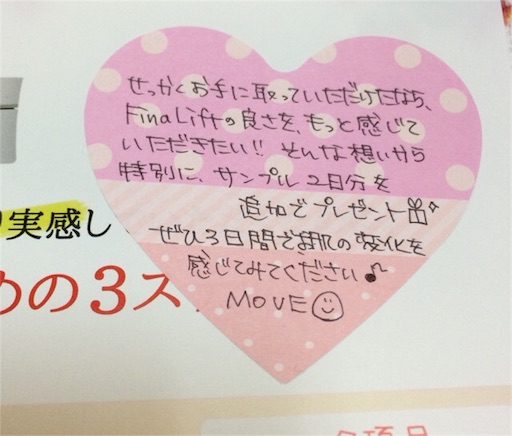 せっかくお手に取っていただけたなら、
FinaLiftの良さを、もっと感じて
いただきたい!! そんな想いから
特別に、サンプル2日分を
追加でプレゼント
ぜひ3日間でお肌の変化を
感じてみてください♪
MOVE
実感し
めの3ス